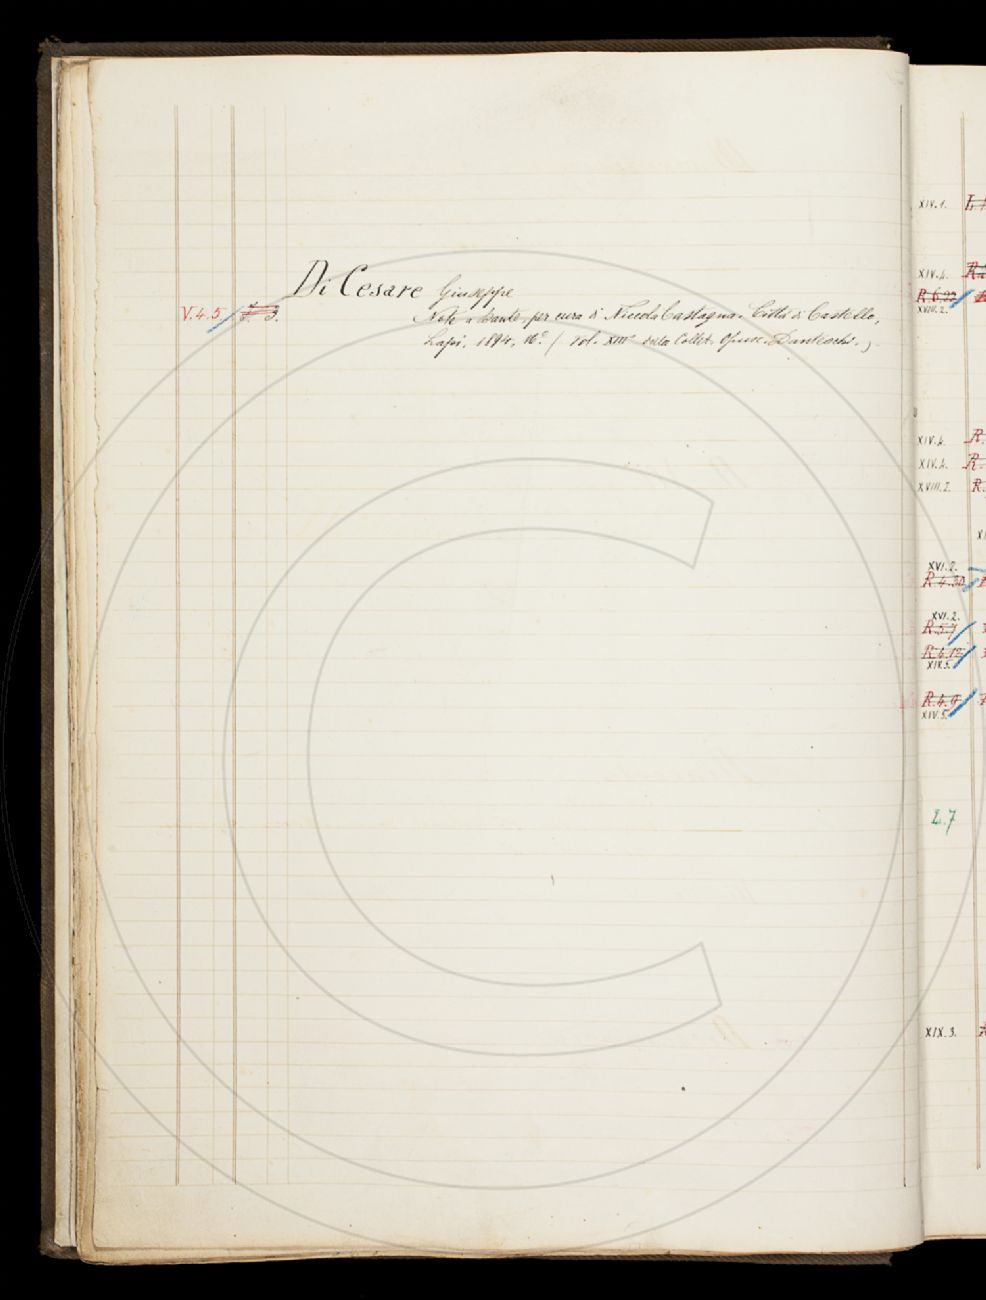 Di Cesare Giuseppe
V.4.5 3. Note a Dante per cura di Niccola Castagna. Città di Castello,
Lapi, 1894, 16° ( vol. XIII° della Collez. Opusc. Danteschi.)
XIV.1.
XIV.4.
R.6.22
XVIII.2.
XIV.4.
XIV.4.
XVIII.2.
XVI.2.
R 4.30
XVI.2.
R.5.7
R.6.12
XIX.5.
R.4.9
XIV.5.
2.7
XIX.3.